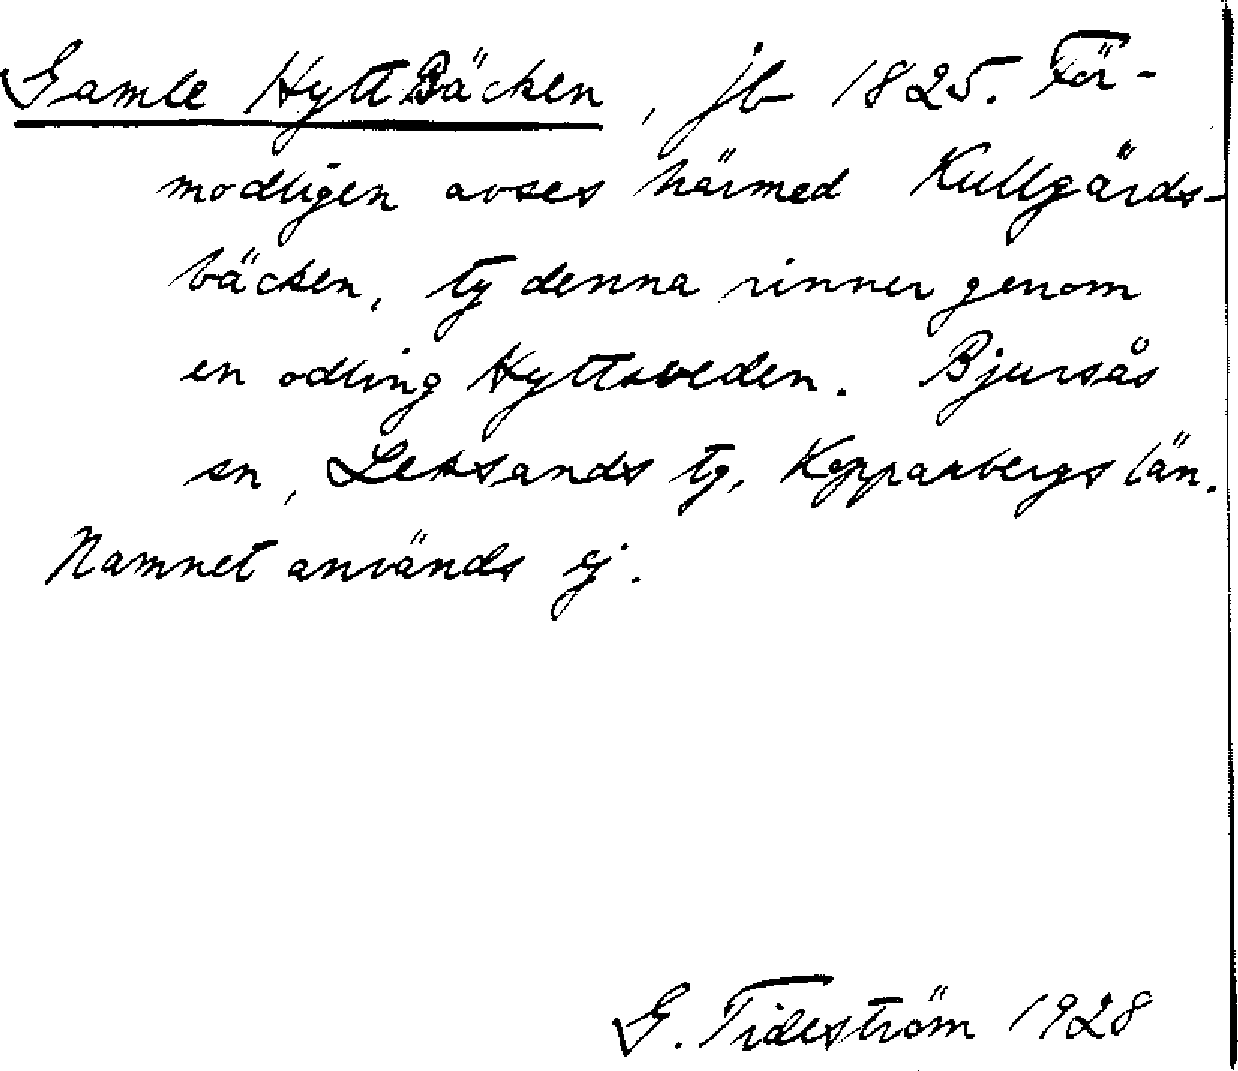 Gamle HyttBäcken, jb 1825. För-
modligen avses härmed Kullgärds-
bäcken, ty denna rinner genom
en odling Hyttsveden. Bjursås
sn, Leksands tg, Kopparbergs län.
Namnet används ej.
G. Tideström 1928